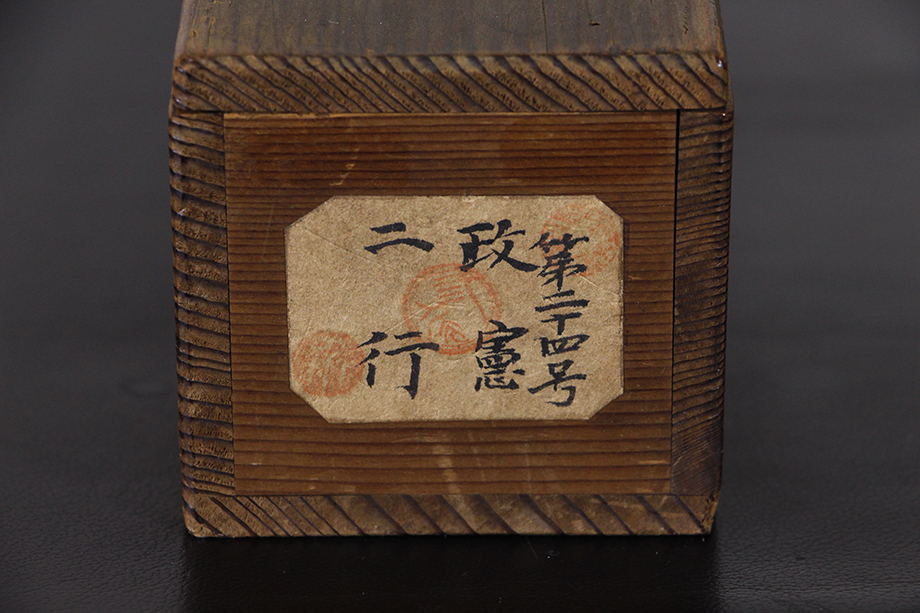 第二十四号
政憲
二行